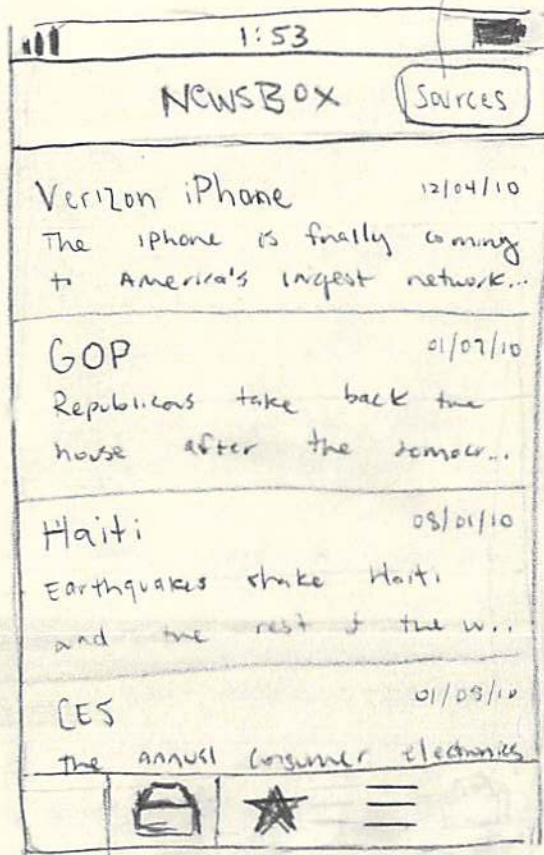 1:53
NEWSBOX
Sources
Verizon iPhone 12/04/10
The iPhone is finally coming
to America's largest network...
GOP 01/07/10
Republicans take back the
house after the democr...
Haiti 08/01/10
Earthquakes shake Haiti
and the rest of the w..
CES 01/08/10
The annual consumer electronics